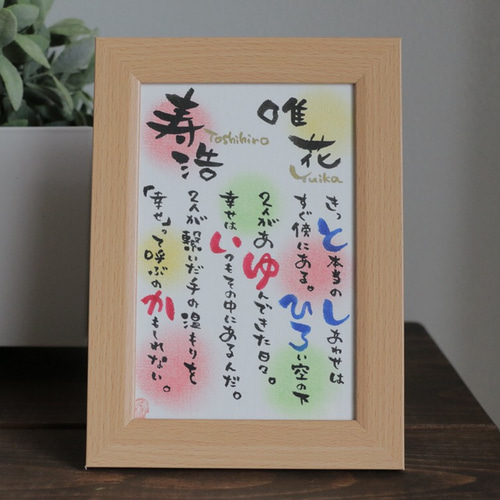 唯花
Yuika
寿浩
Toshihiro
きっと本当のしあわせは
すぐ傍にある。ひろい空の下
2人があゆんできた日々。
幸せはいつもその中にあるんだ。
2人が繋いだ手の温もりを
「幸せ」って呼ぶのかもしれない。